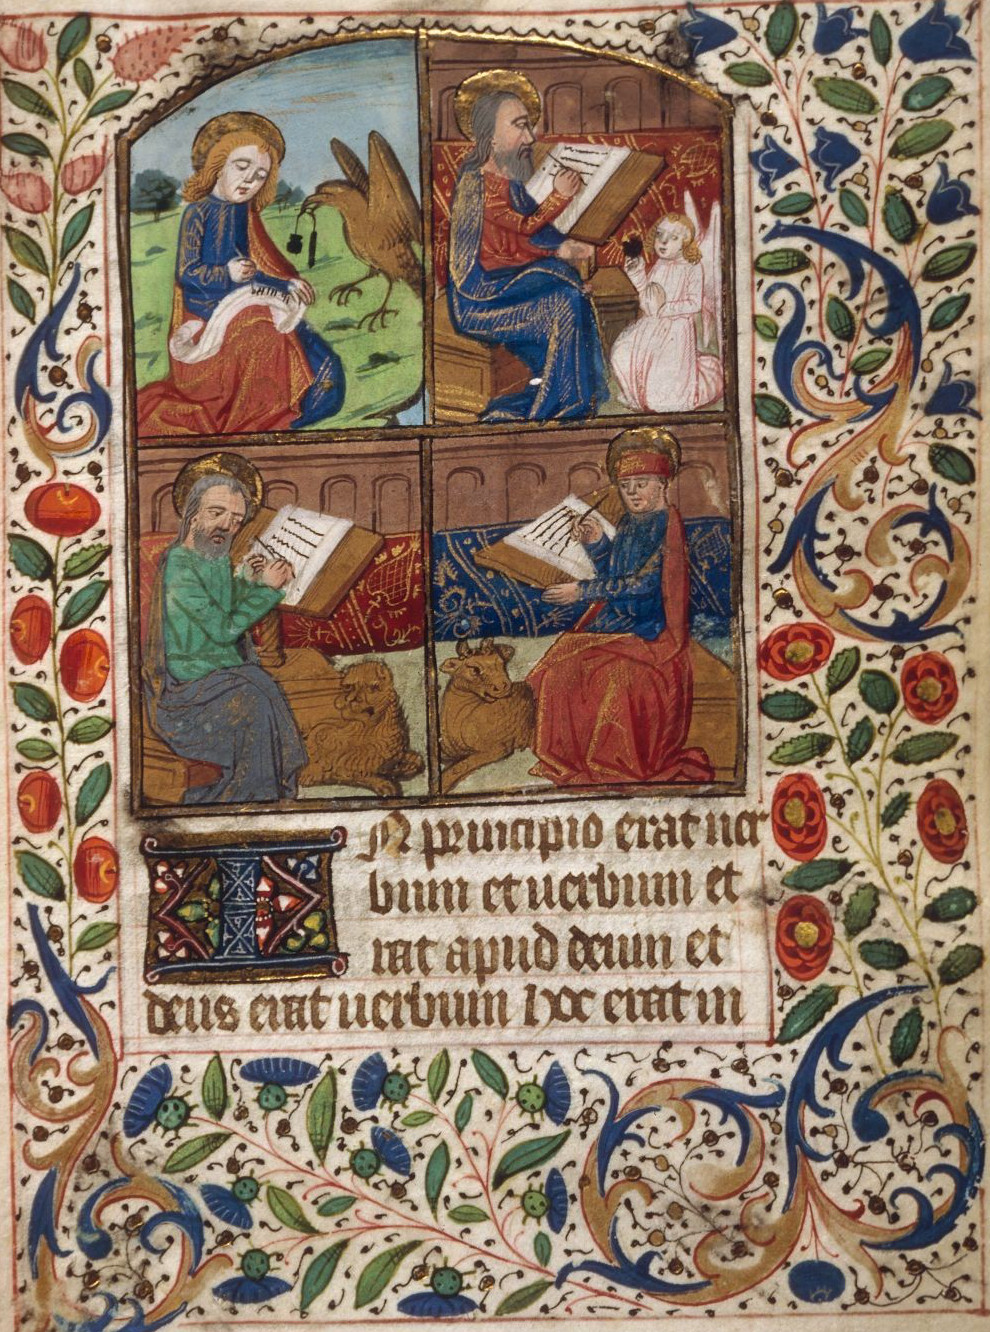 IN principio erat uer
bum et uerbum et
rat apud deum et
deus erat uerbum hoc erat in